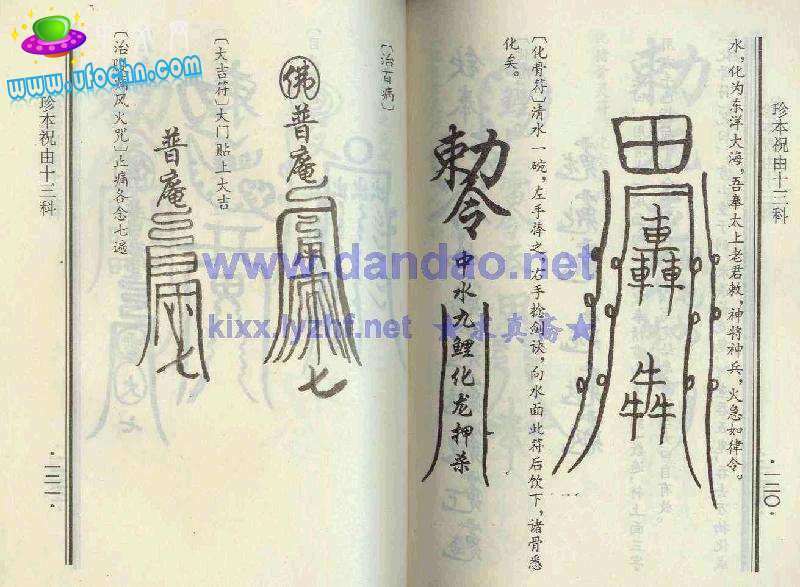 珍本祝由十三科
·一二〇·
水，化为东洋大海，吾奉太上老君敕，神将神兵，火急如律令。
田
轟
犇
〔化骨符〕清水一碗，左手持之，右手枪剑诀，向水面此符后饮下，诸骨悉
化矣。
勅令
中水九鲤化龙押杀
〔治百病〕
佛普庵
七
〔大吉符〕大门贴上大吉
普庵
七
痛风火咒〕止痛各念七遍
珍本祝由十三科
·一二一·
www.ufochn.com
www.dandao.net